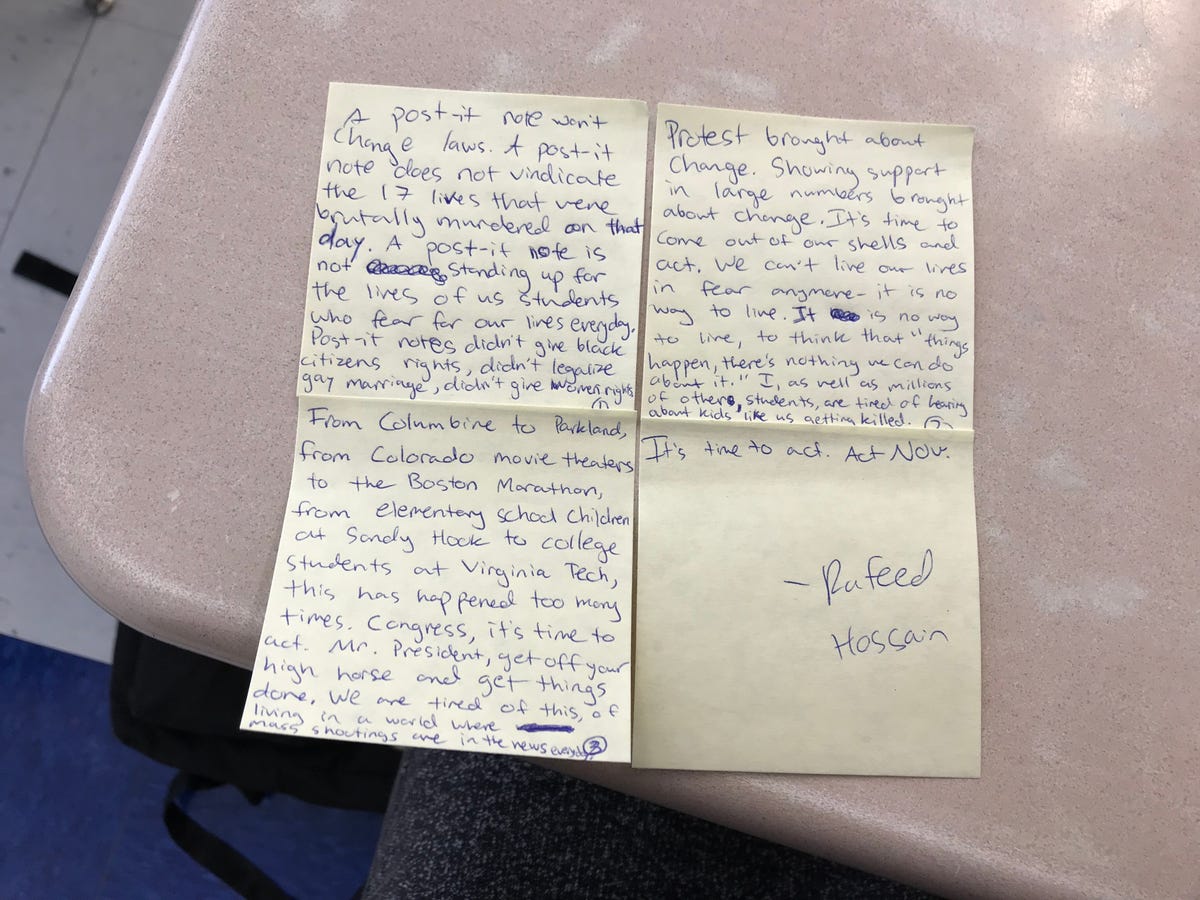 A post-it note won't
change laws. A post-it
note does not vindicate
the 17 lives that were
brutally murdered on that
day. A post-it note is
not standing up for
the lives of us students
who fear for our lives everyday.
Post-it notes didn't give black
citizens rights, didn't legalize
gay marriage, didn't give women rights
1
Protest brought about
change. Showing support
in large numbers brought
about change. It's time to
come out of our shells and
act. We can't live our lives
in fear anymore- it is no
way to live. It is no way
to live, to think that "things
happen, there's nothing we can do
about it." I, as well as millions
of others, students, are tired of hearing
about kids like us getting killed. 2
From Columbine to Parkland,
from Colorado movie theaters
to the Boston Marathon,
from elementary school children
at Sandy Hook to college
students at Virginia Tech,
this has happened too many
times. Congress, it's time to
act. Mr. President, get off your
high horse and get things
done. We are tired of this, of
living in a world where
mass shootings are in the news everyday. 3
It's time to act. Act NOW.
- Rafeed
Hossain